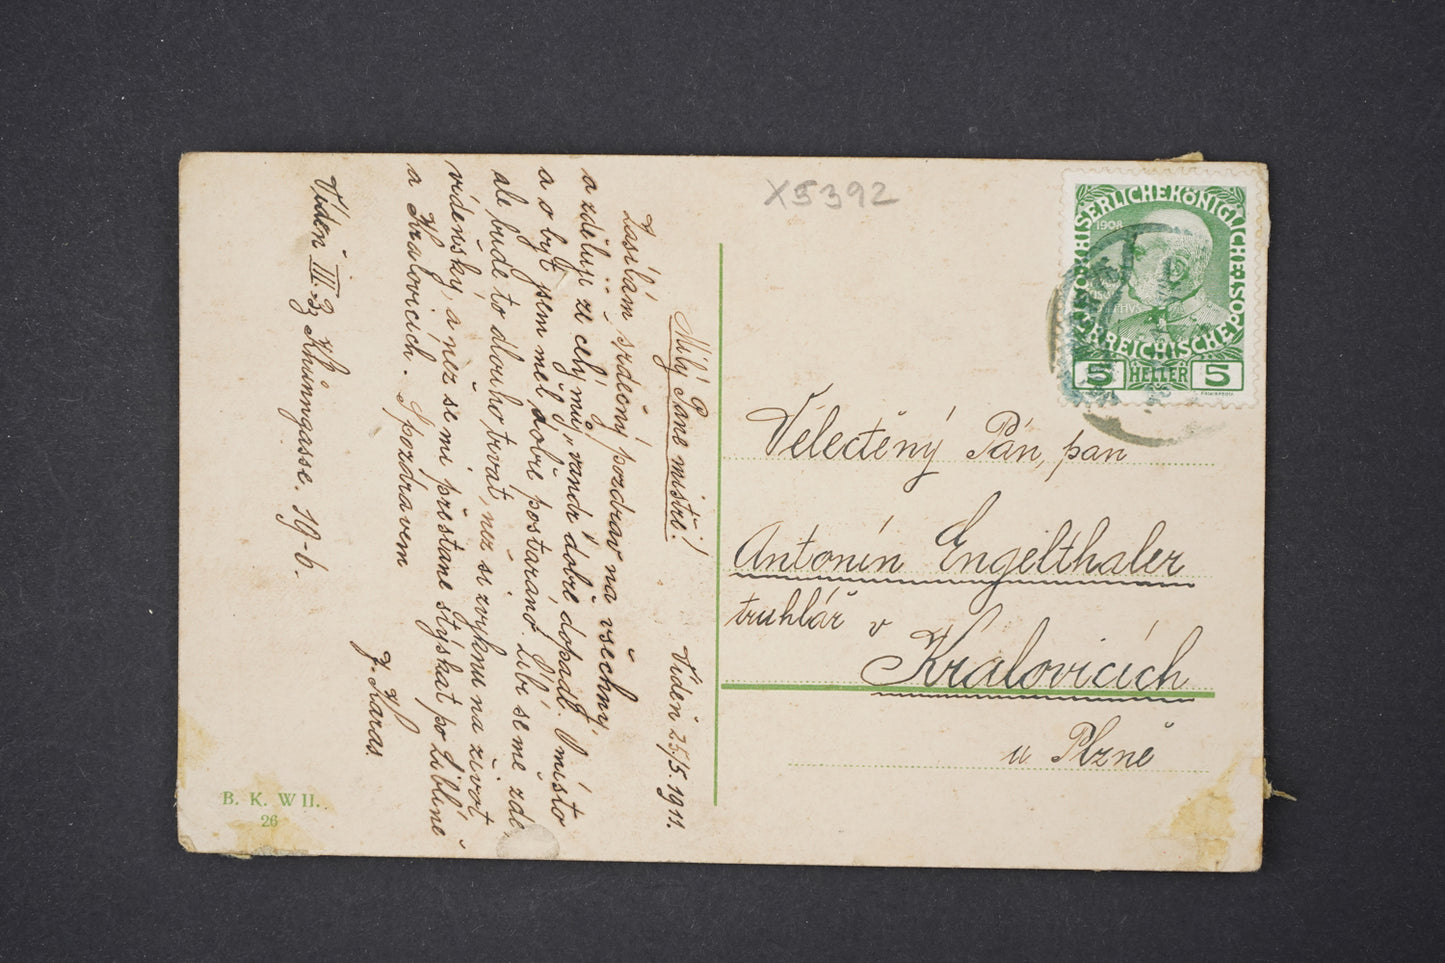 Vídeň 25/5. 1911.
Milý Pane mistře!
Zasílám srdečný pozdrav na všechny
a zděluji ze celý můj „vandr“ dobře dopadl. O místo
a o byt jsem měl dobře postaráno. Líbí se mě zde
ale bude to dlouho trvat, nez si zvyknu na zivot
vídeňský, a nez se mi přestane stýskat po Liblině
a Kralovicích. S pozdravem
J. Karas.
Vídeň III.-3, Khünngasse. 19-6.
B. K. W II.
26
X5392
KAISERLICHE KÖNIGLICHE
ÖSTERREICHISCHE POST
1908
5 HELLER 5
Velectěný Pán, pan
Antonín Engelthaler
truhlář v
Kralovicích
u Plzně